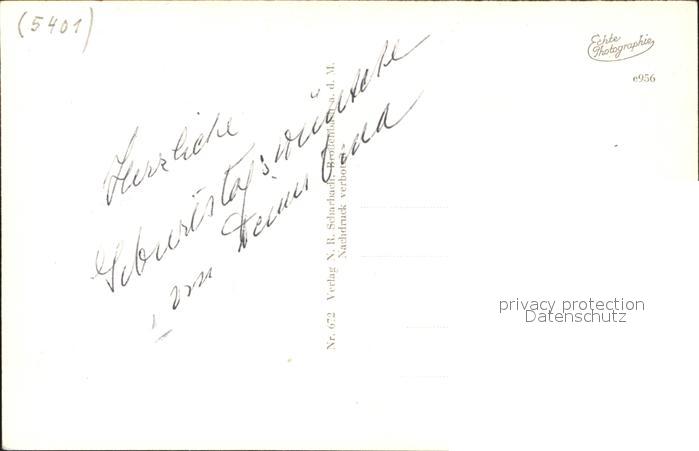 (5401)
Echte
Photographie
e956
Herzliche
Geburtstagswünsche
von Deiner
Nr. 672 Verlag N. R. Scharbach, a. d. M.
Nachdruck verboten
privacy protection
Datenschutz